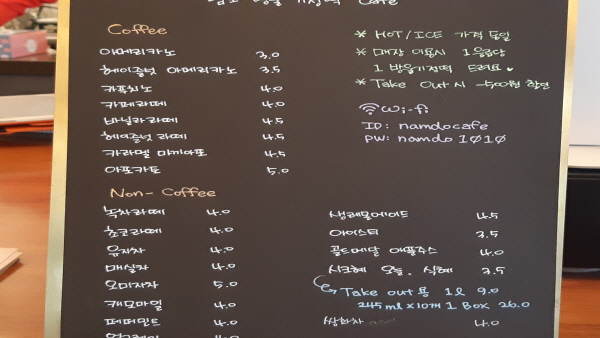 Cafe
Coffee
아메리카노 3.0
헤이즐넛 아메리카노 3.5
카푸치노 4.0
카페라떼 4.0
바닐라라떼 4.5
헤이즐넛 라떼 4.5
카라멜 마끼아또 4.5
아포카토 5.0
* HOT/ICE 가격 동일
* 매장 이용시 1음료당
1 방울기정떡 드려요
* Take Out 시 -500원 할인
Wi-fi
ID: namdocafe
PW: namdo1010
Non-Coffee
녹차라떼 4.0
초코라떼 4.0
유자차 4.0
매실차 4.0
오미자차 5.0
캐모마일 4.0
페퍼민트 4.0
4.0
생레몬에이드 4.5
아이스티 3.5
골드메달 애플쥬스 4.0
시크해 오늘, 식혜 3.5
Take out 용 1l 9.0
245ml x 10개 1 Box 26.0
쌍화차 4.0